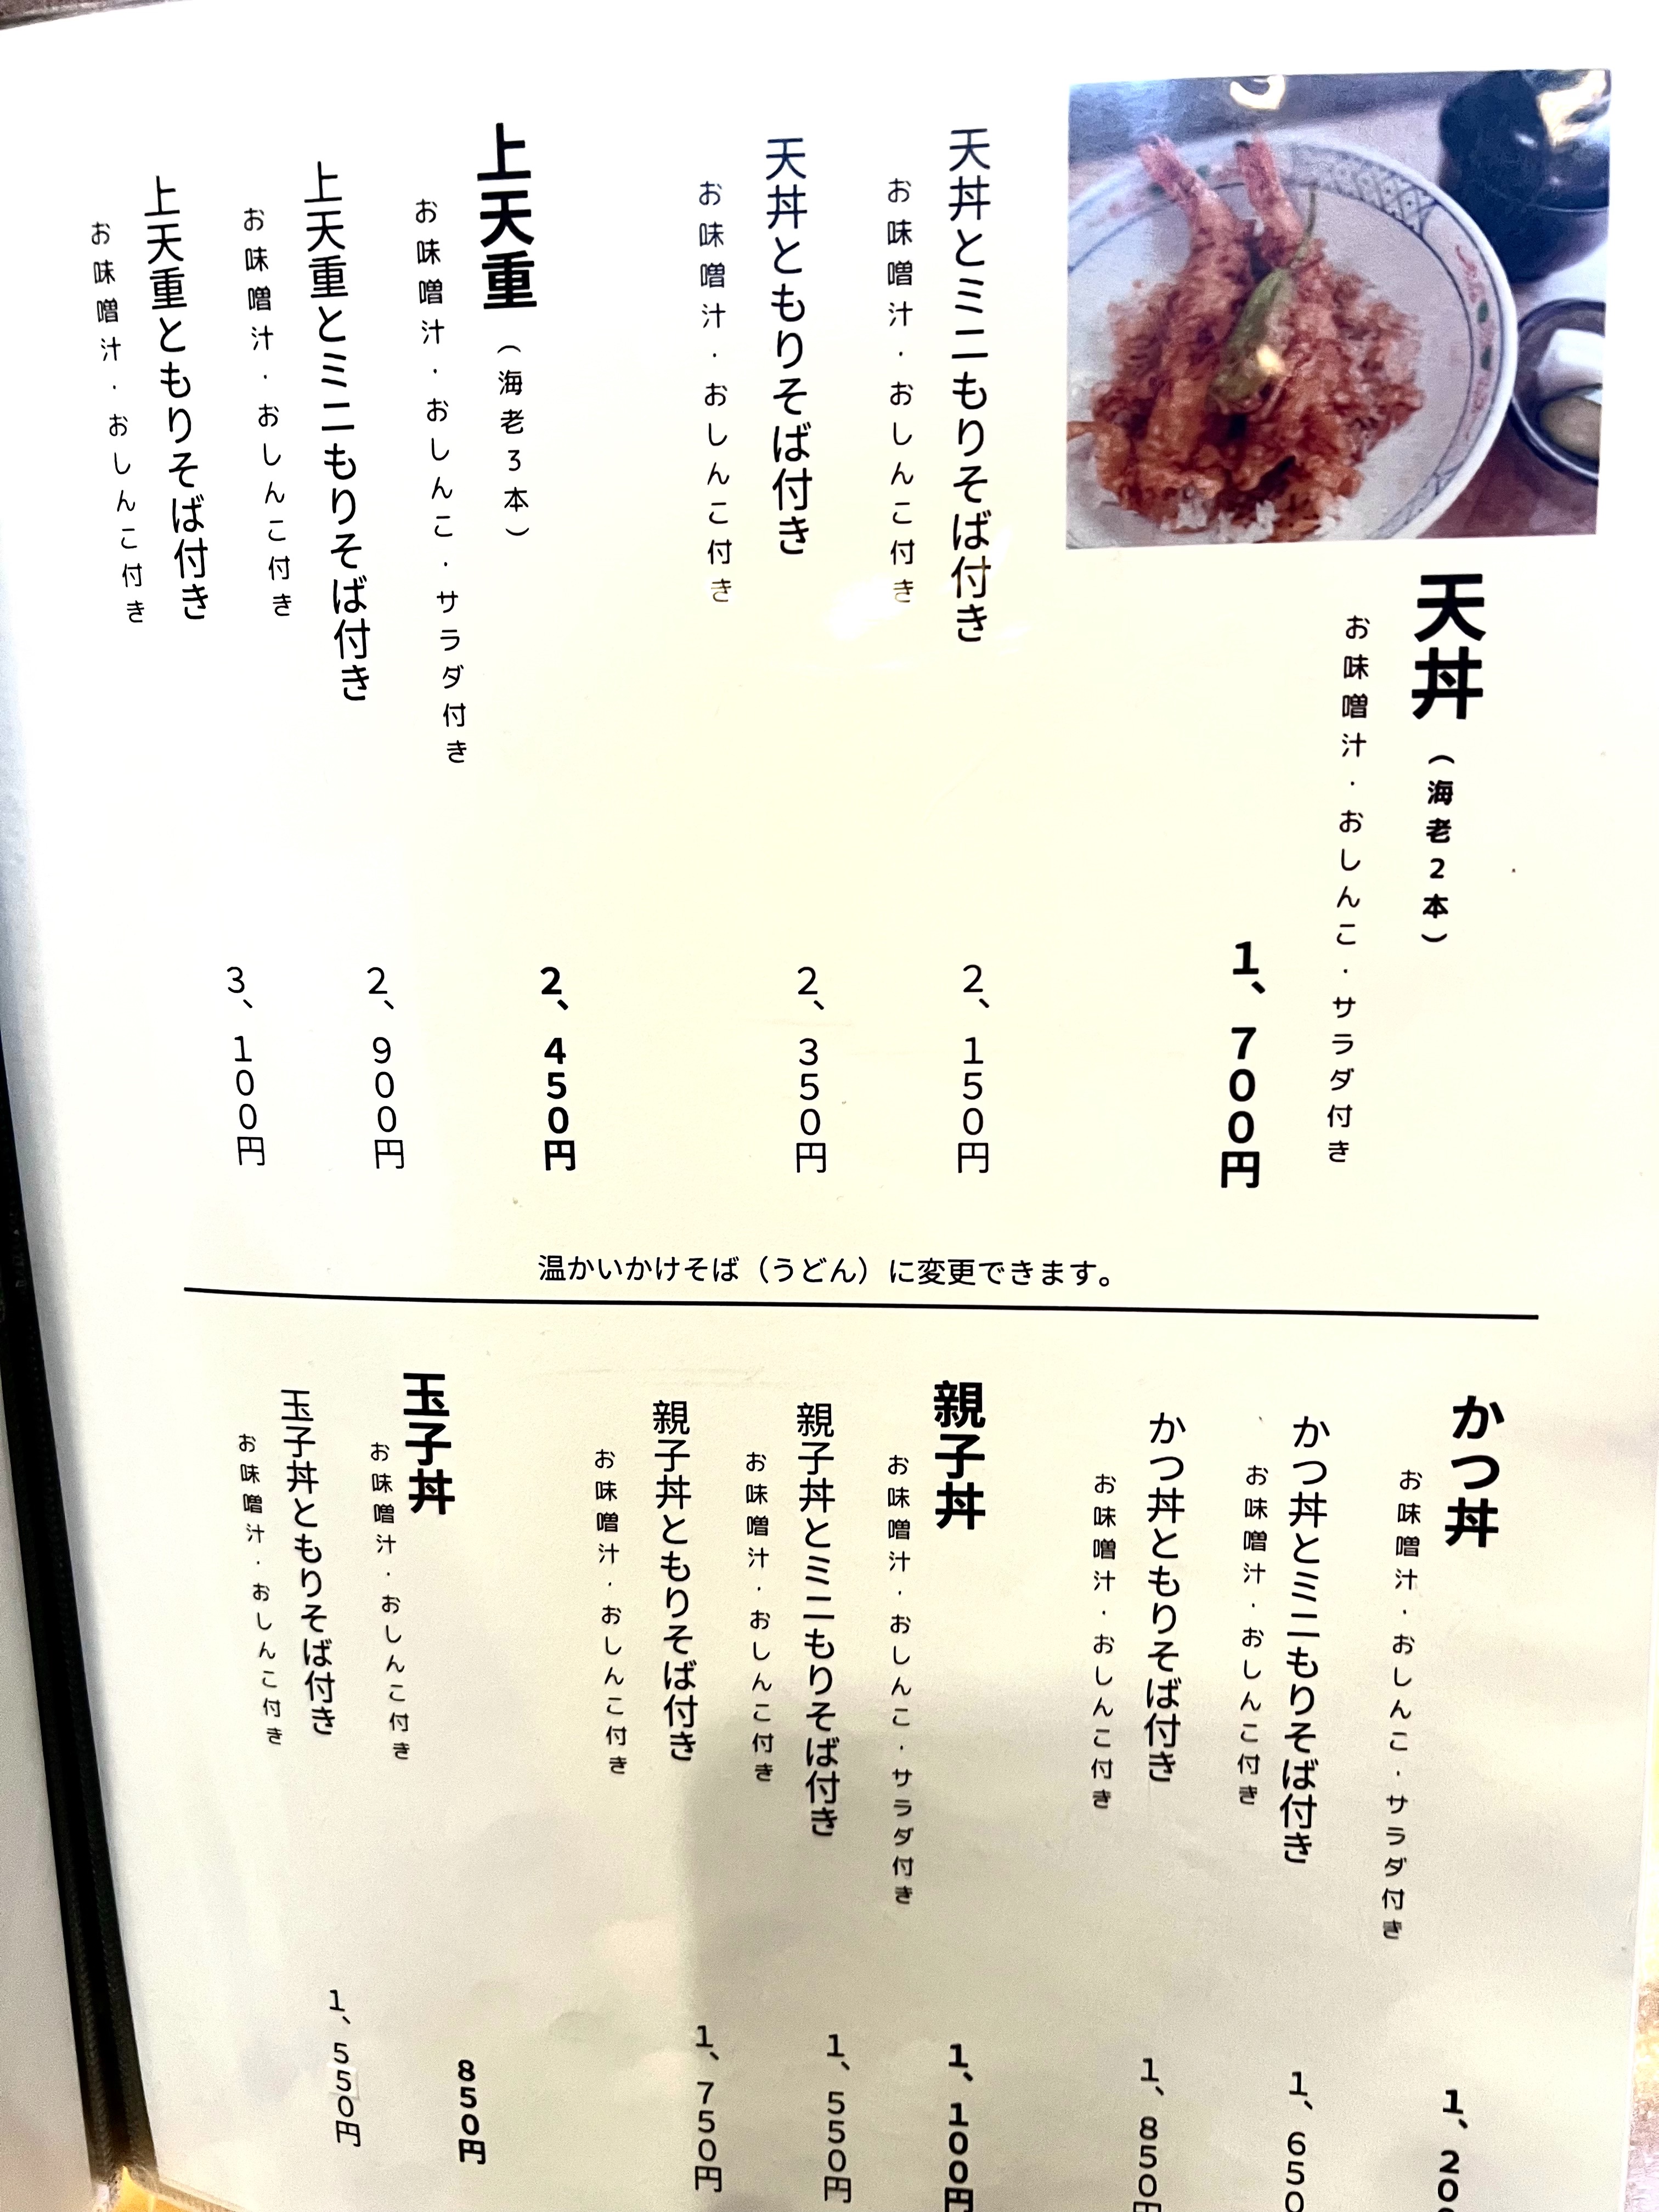 天丼（海老2本）
お味噌汁・おしんこ・サラダ付き
1、700円
天丼とミニもりそば付き
お味噌汁・おしんこ付き
2、150円
天丼ともりそば付き
お味噌汁・おしんこ付き
2、350円
上天重（海老3本）
お味噌汁・おしんこ・サラダ付き
2、450円
上天重とミニもりそば付き
お味噌汁・おしんこ付き
2、900円
上天重ともりそば付き
お味噌汁・おしんこ付き
3、100円
温かいかけそば（うどん）に変更できます。
かつ丼
お味噌汁・おしんこ・サラダ付き
1、20
かつ丼とミニもりそば付き
お味噌汁・おしんこ付き
1、650
かつ丼ともりそば付き
お味噌汁・おしんこ付き
1、850円
親子丼
お味噌汁・おしんこ・サラダ付き
1、100円
親子丼とミニもりそば付き
お味噌汁・おしんこ付き
1、550円
親子丼ともりそば付き
お味噌汁・おしんこ付き
1、750円
玉子丼
お味噌汁・おしんこ付き
850円
玉子丼ともりそば付き
お味噌汁・おしんこ付き
1、550円